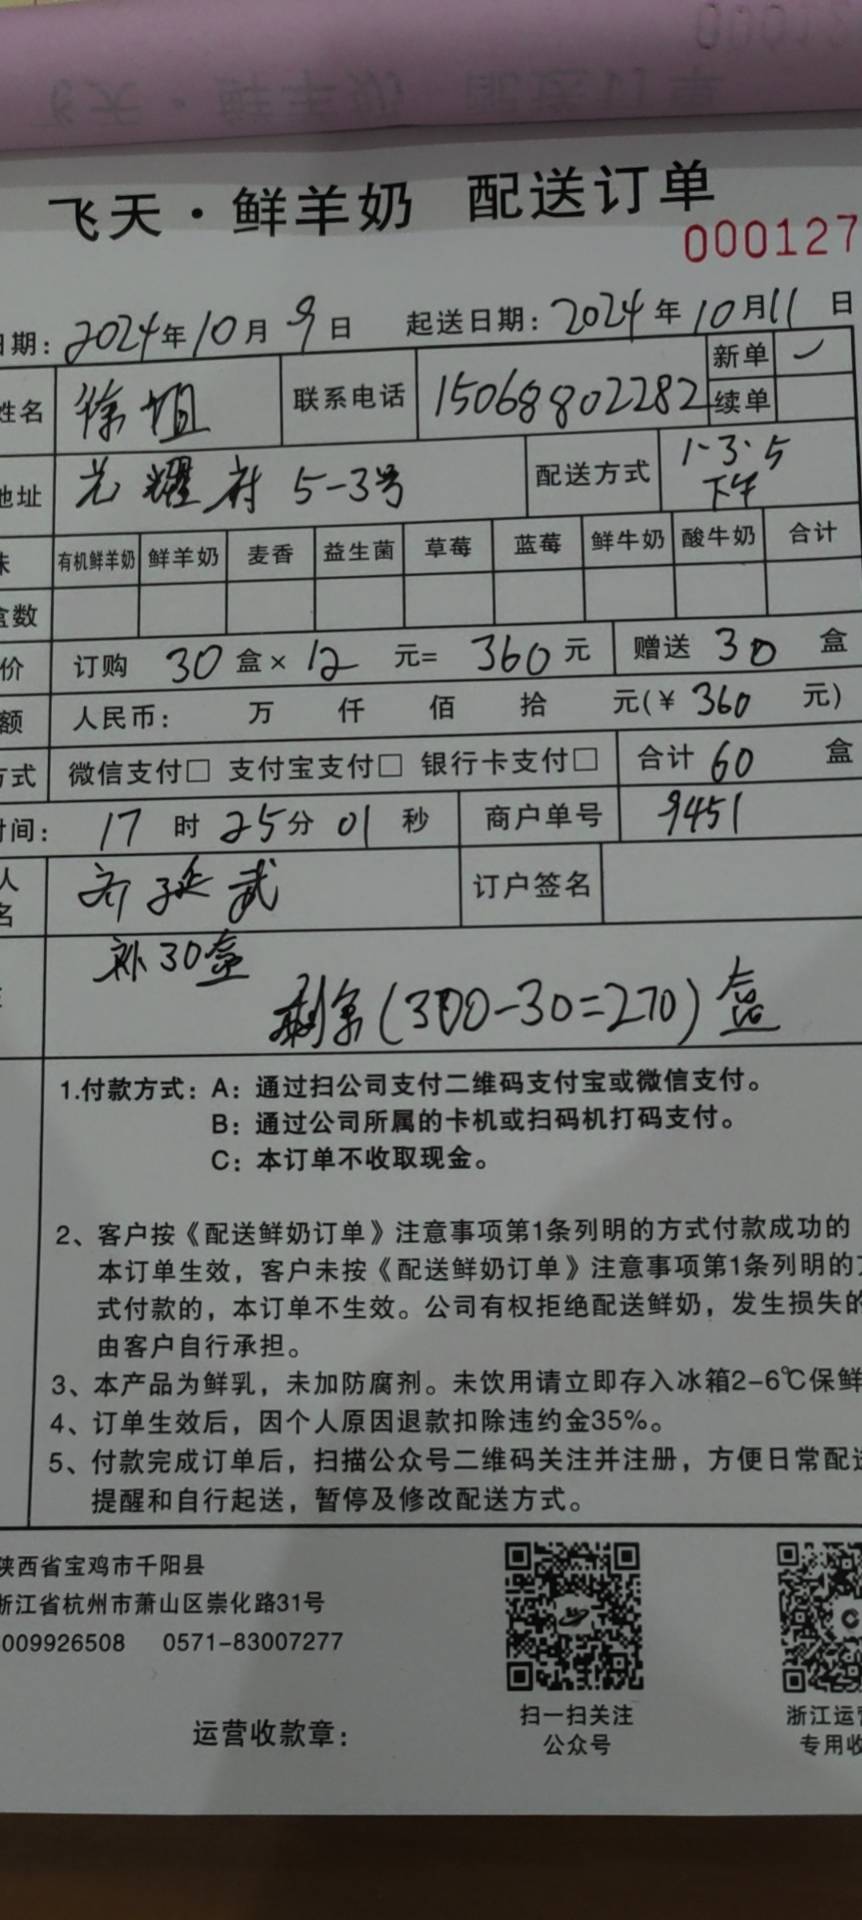 飞天·鲜羊奶 配送订单
000127
日期：2024年10月9日 起送日期：2024年10月11日
姓名 徐姐 联系电话 15068802282 新单 ✓
续单
地址 光耀府 5-3号 配送方式 1·3·5
下午
味 有机鲜羊奶 鲜羊奶 麦香 益生菌 草莓 蓝莓 鲜牛奶 酸牛奶 合计
盒数
价 订购 30 盒× 12 元= 360 元 赠送 30 盒
额 人民币： 万 仟 佰 拾 元(￥ 360 元)
方式 微信支付□ 支付宝支付□ 银行卡支付□ 合计 60 盒
时间： 17 时 25 分 01 秒 商户单号 9451
人
名 齐延武 订户签名
补30盒
剩余(300-30=270)盒
1.付款方式：A：通过扫公司支付二维码支付宝或微信支付。
B：通过公司所属的卡机或扫码机打码支付。
C：本订单不收取现金。
2、客户按《配送鲜奶订单》注意事项第1条列明的方式付款成功的
本订单生效，客户未按《配送鲜奶订单》注意事项第1条列明的方
式付款的，本订单不生效。公司有权拒绝配送鲜奶，发生损失的
由客户自行承担。
3、本产品为鲜乳，未加防腐剂。未饮用请立即存入冰箱2-6℃保鲜
4、订单生效后，因个人原因退款扣除违约金35%。
5、付款完成订单后，扫描公众号二维码关注并注册，方便日常配送
提醒和自行起送，暂停及修改配送方式。
陕西省宝鸡市千阳县
浙江省杭州市萧山区崇化路31号
009926508 0571-83007277
扫一扫关注
公众号
浙江运营
专用收
运营收款章：